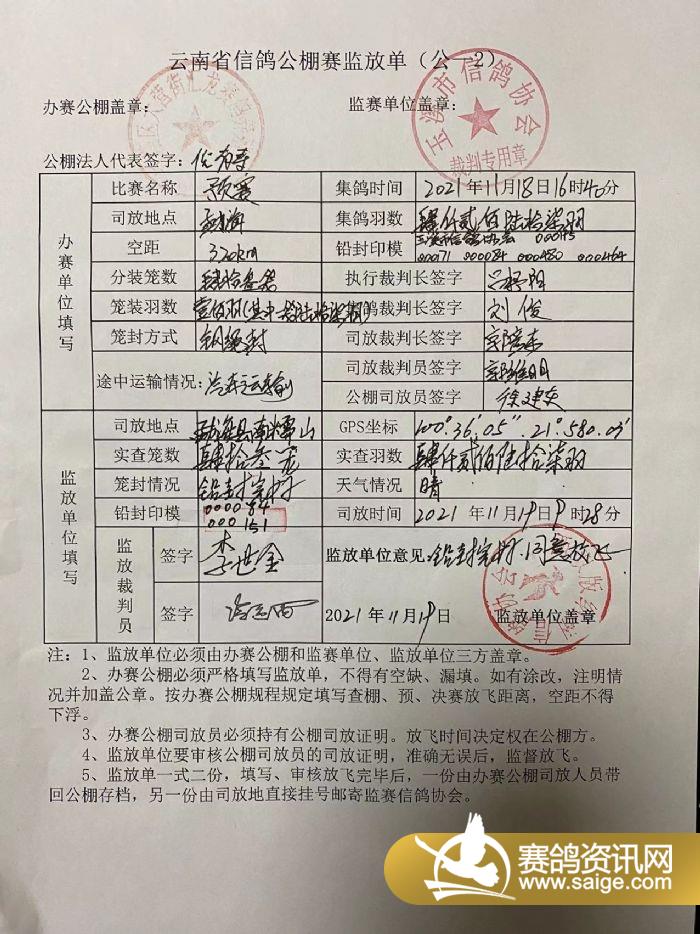 云南省信鸽公棚赛监放单（公—2）
办赛公棚盖章：
监赛单位盖章：
玉溪市信鸽协会
裁判专用章
公棚法人代表签字：
办赛单位填写
比赛名称 预赛 集鸽时间 2021年11月18日16时40分
司放地点 勐海 集鸽羽数 肆仟贰佰陆拾柒羽
空距 320km 铅封印模 玉溪市信鸽协会
000171 000084 000480 000464
分装笼数 执行裁判长签字
笼装羽数 鸽裁判长签字 刘俊
笼封方式 钢绳封 司放裁判长签字
司放裁判员签字
途中运输情况：汽车运输
公棚司放员签字 徐建东
监放单位填写
司放地点 GPS坐标
实查笼数 肆拾叁笼 实查羽数 肆仟贰佰陆拾柒羽
笼封情况 铅封完好 天气情况 晴
铅封印模 000084
000151
司放时间 2021年11月19日9时28分
监放裁判员
签字 李世金
监放单位意见：铅封完好.同意放飞
签字
2021年11月19日
监放单位盖章
注：1、监放单位必须由办赛公棚和监赛单位、监放单位三方盖章。
2、办赛公棚必须严格填写监放单，不得有空缺、漏填。如有涂改，注明情
况并加盖公章。按办赛公棚规程规定填写查棚、预、决赛放飞距离，空距不得
下浮。
3、办赛公棚司放员必须持有公棚司放证明。放飞时间决定权在公棚方。
4、监放单位要审核公棚司放员的司放证明，准确无误后，监督放飞。
5、监放单一式二份，填写、审核放飞完毕后，一份由办赛公棚司放人员带
回公棚存档，另一份由司放地直接挂号邮寄监赛信鸽协会。
赛鸽资讯网
www.saige.com